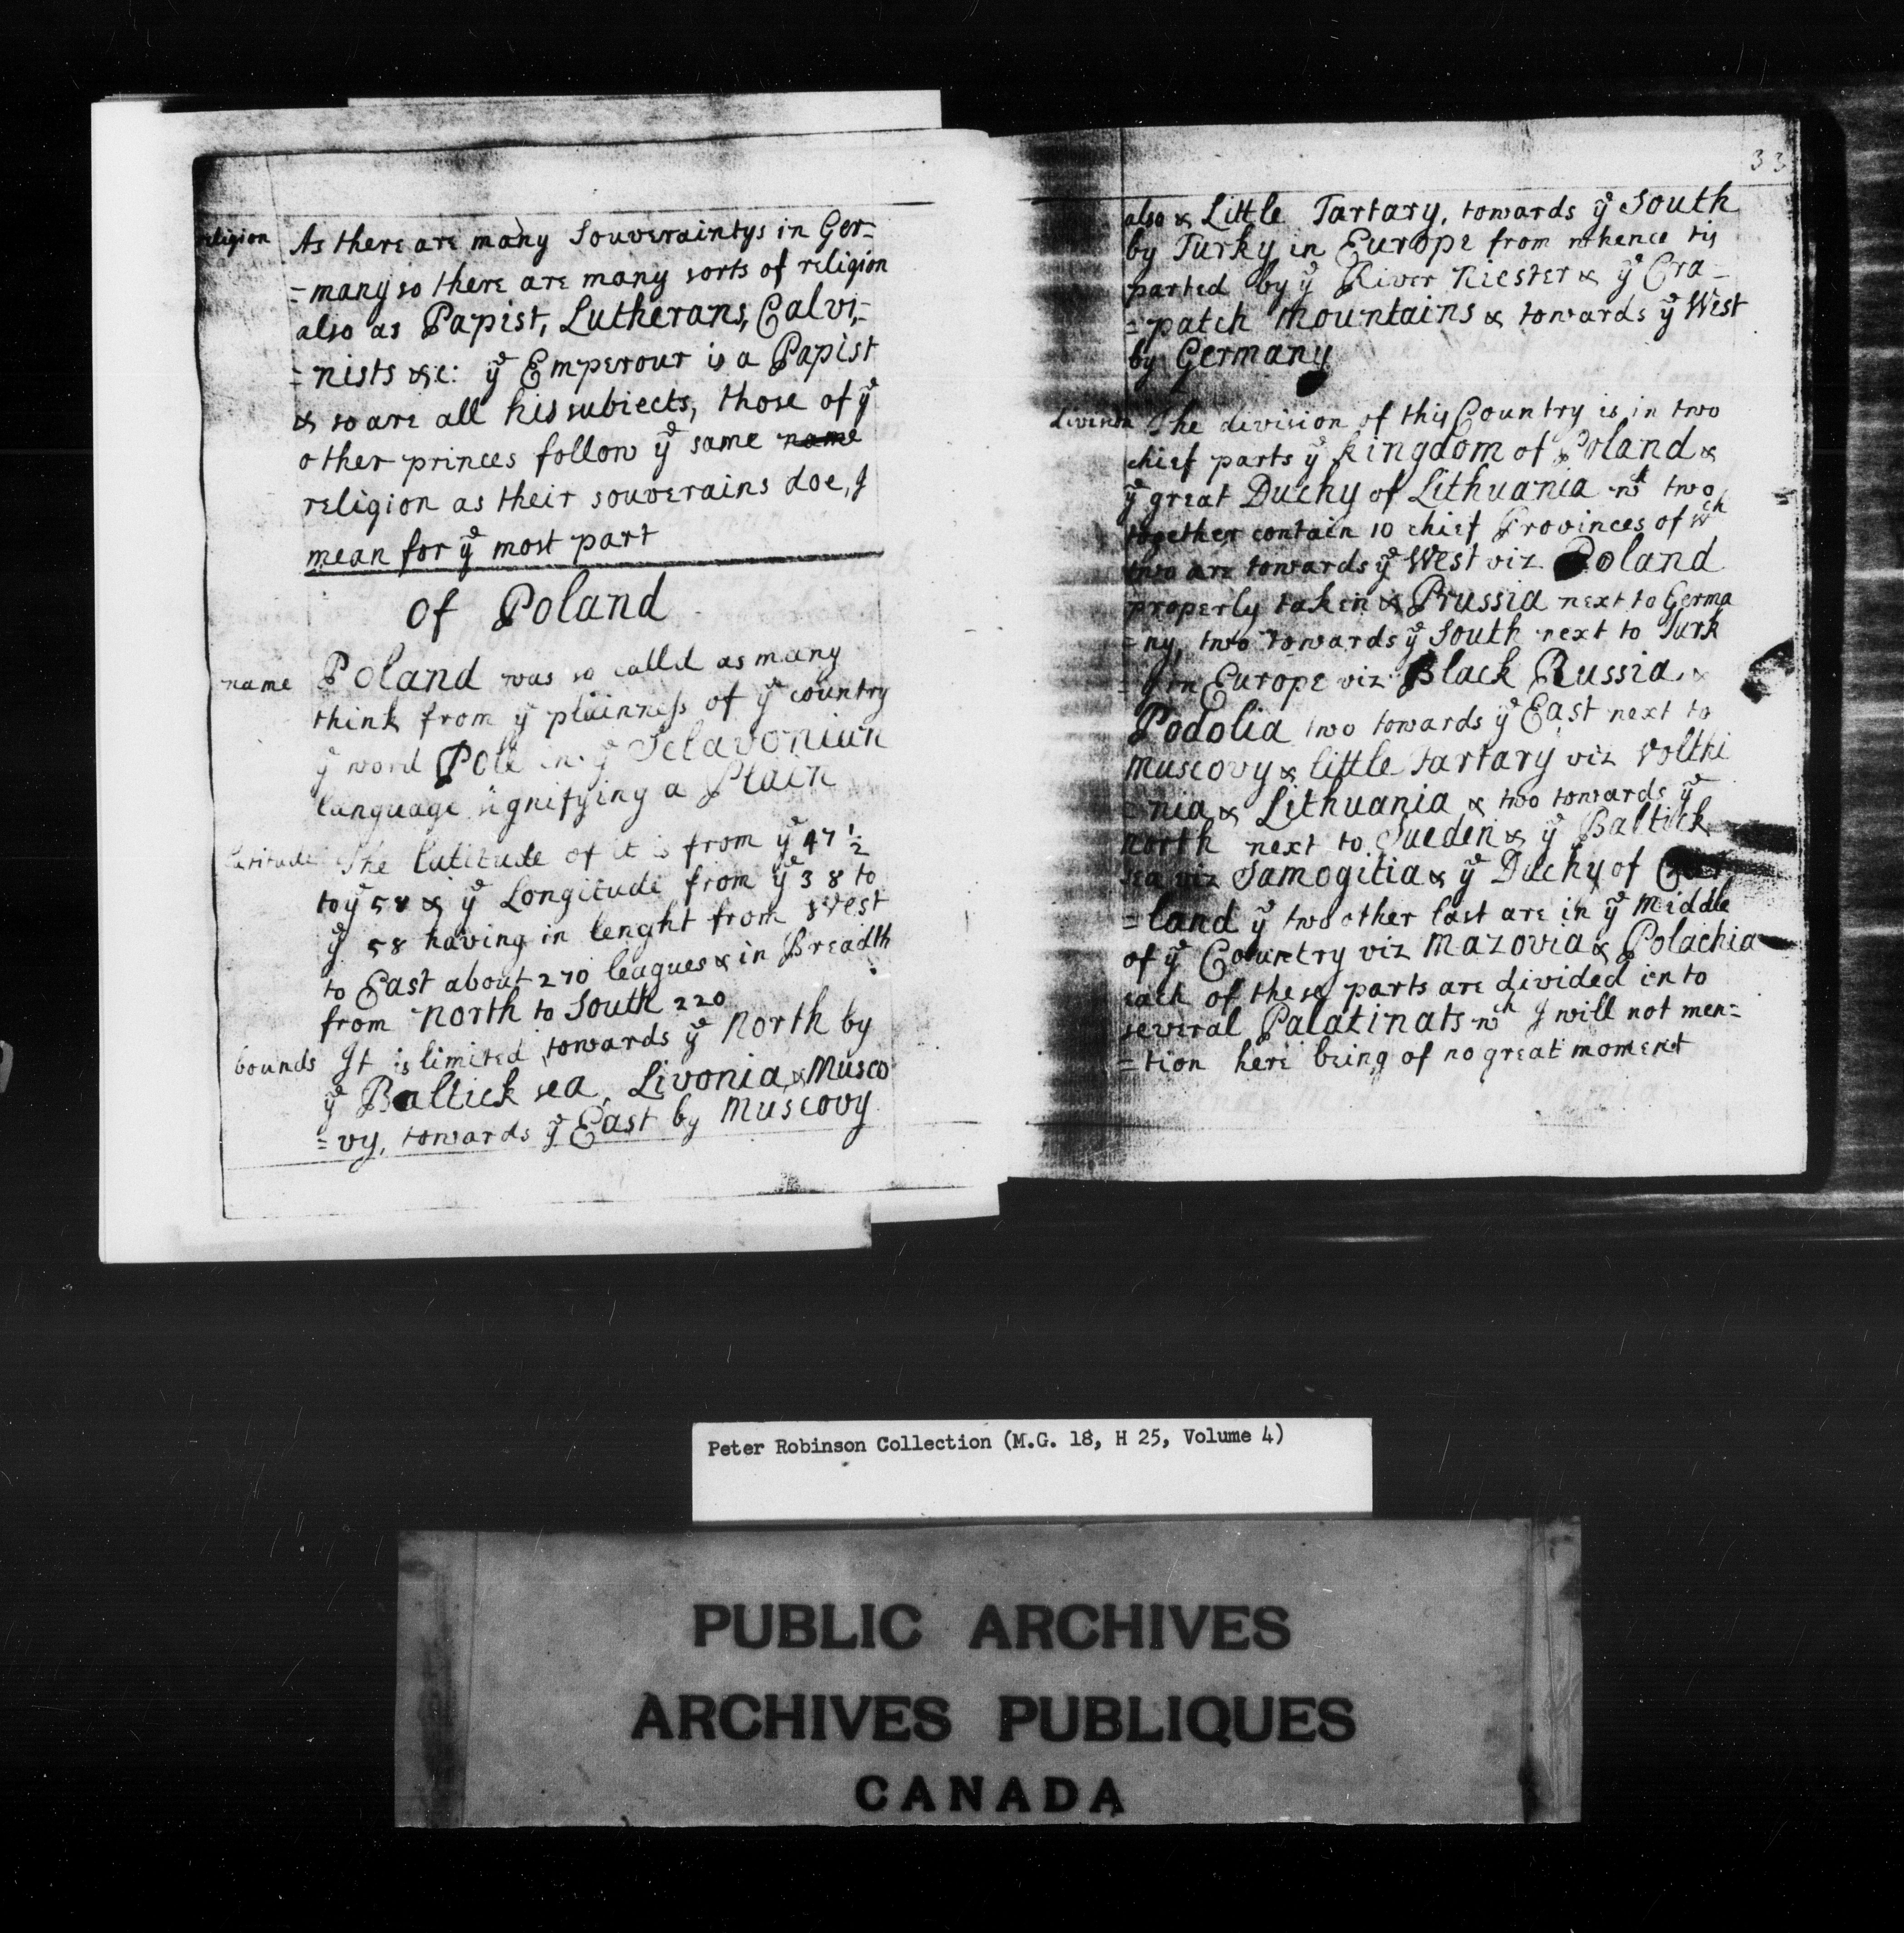 religion As there are many Souveraintys in Ger=
=many so there are many sorts of religion
also as Papist, Lutherans, Calvi,=
=nists &c: yᵉ Emperour is a Papist
& so are all his subiects, those of yᵉ
other princes follow yᵉ same name
religion as their souverains doe, J
mean for yᵉ most part
Of Poland
name Poland was so calld as many
think from yᵉ plainness of yᵉ country
yᵉ word Pole in yᵉ Sclavonian
language signifying a Plain
latitude The latitude of it is from yᵉ 47 ½
to yᵉ 58 & yᵉ Longitude from yᵉ 38 to
yᵉ 58 having in lenght from West
to East about 270 leagues & in Breadth
from North to South 220
bounds Jt is limited towards yᵉ North by
yᵉ Baltick sea, Livonia, & Musco
=vy, towards yᵉ East by Muscovy
33
also & Little Tartary, towards yᵉ South
by Turky in Europe from whence tis
parted by yᵉ River Niester & yᵉ Cra=
=patch mountains & towards yᵉ West
by Germany
The division of this Country is in two
chief parts yᵉ kingdom of Poland &
yᵉ great Duchy of Lithuania two
together contain 10 chief Provinces of wᶜʰ
two are towards yᵉ West viz Poland
properly taken & Prussia next to Germa
=ny, two towards yᵉ South next to Turk
=y in Europe viz Black Russia &
Podolia two towards yᵉ East next to
Muscovy & little Tartary viz Volhi
=nia & Lithuania & two towards yᵉ
North next to Sueden & yᵉ Baltick
sea viz Samogitia & yᵉ Duchy of
=land yᵉ two other last are in yᵉ Middle
of yᵉ Country viz Mazovia & Polachia
each of these parts are divided in to
several Palatinats wᶜʰ J will not men=
=tion here being of no great moment
Peter Robinson Collection (M.G. 18, H 25, Volume 4)
PUBLIC ARCHIVES
ARCHIVES PUBLIQUES
CANADA